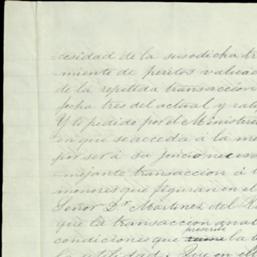 cesidad de la susodicha tr
miento de peritos valuad
de la repetida transaccion
fecha tres del actual y rat
Y lo pedido por el Ministerio
en que se acceda á la
por ser á su juicio necesa
mejante transaccion á l
menores que figuran en el
Señor Dr Martinez del R
que la transaccion
condiciones que presente la
Que en el